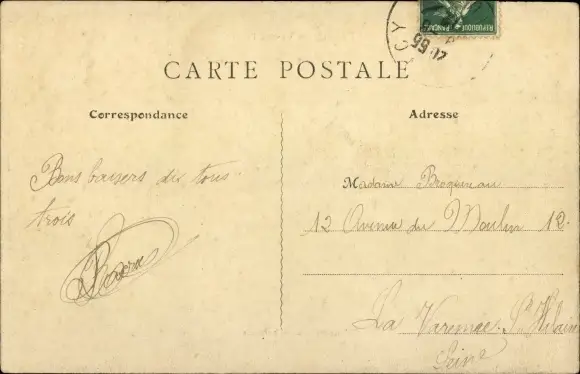 REPUBLIQUE FRANÇAISE
CY
CARTE POSTALE
Correspondance
Adresse
Bons baisers des tous
trois
Madame Broquereau
12 Avenue du Moulin 12
La Varenne St Hilaire
Seine